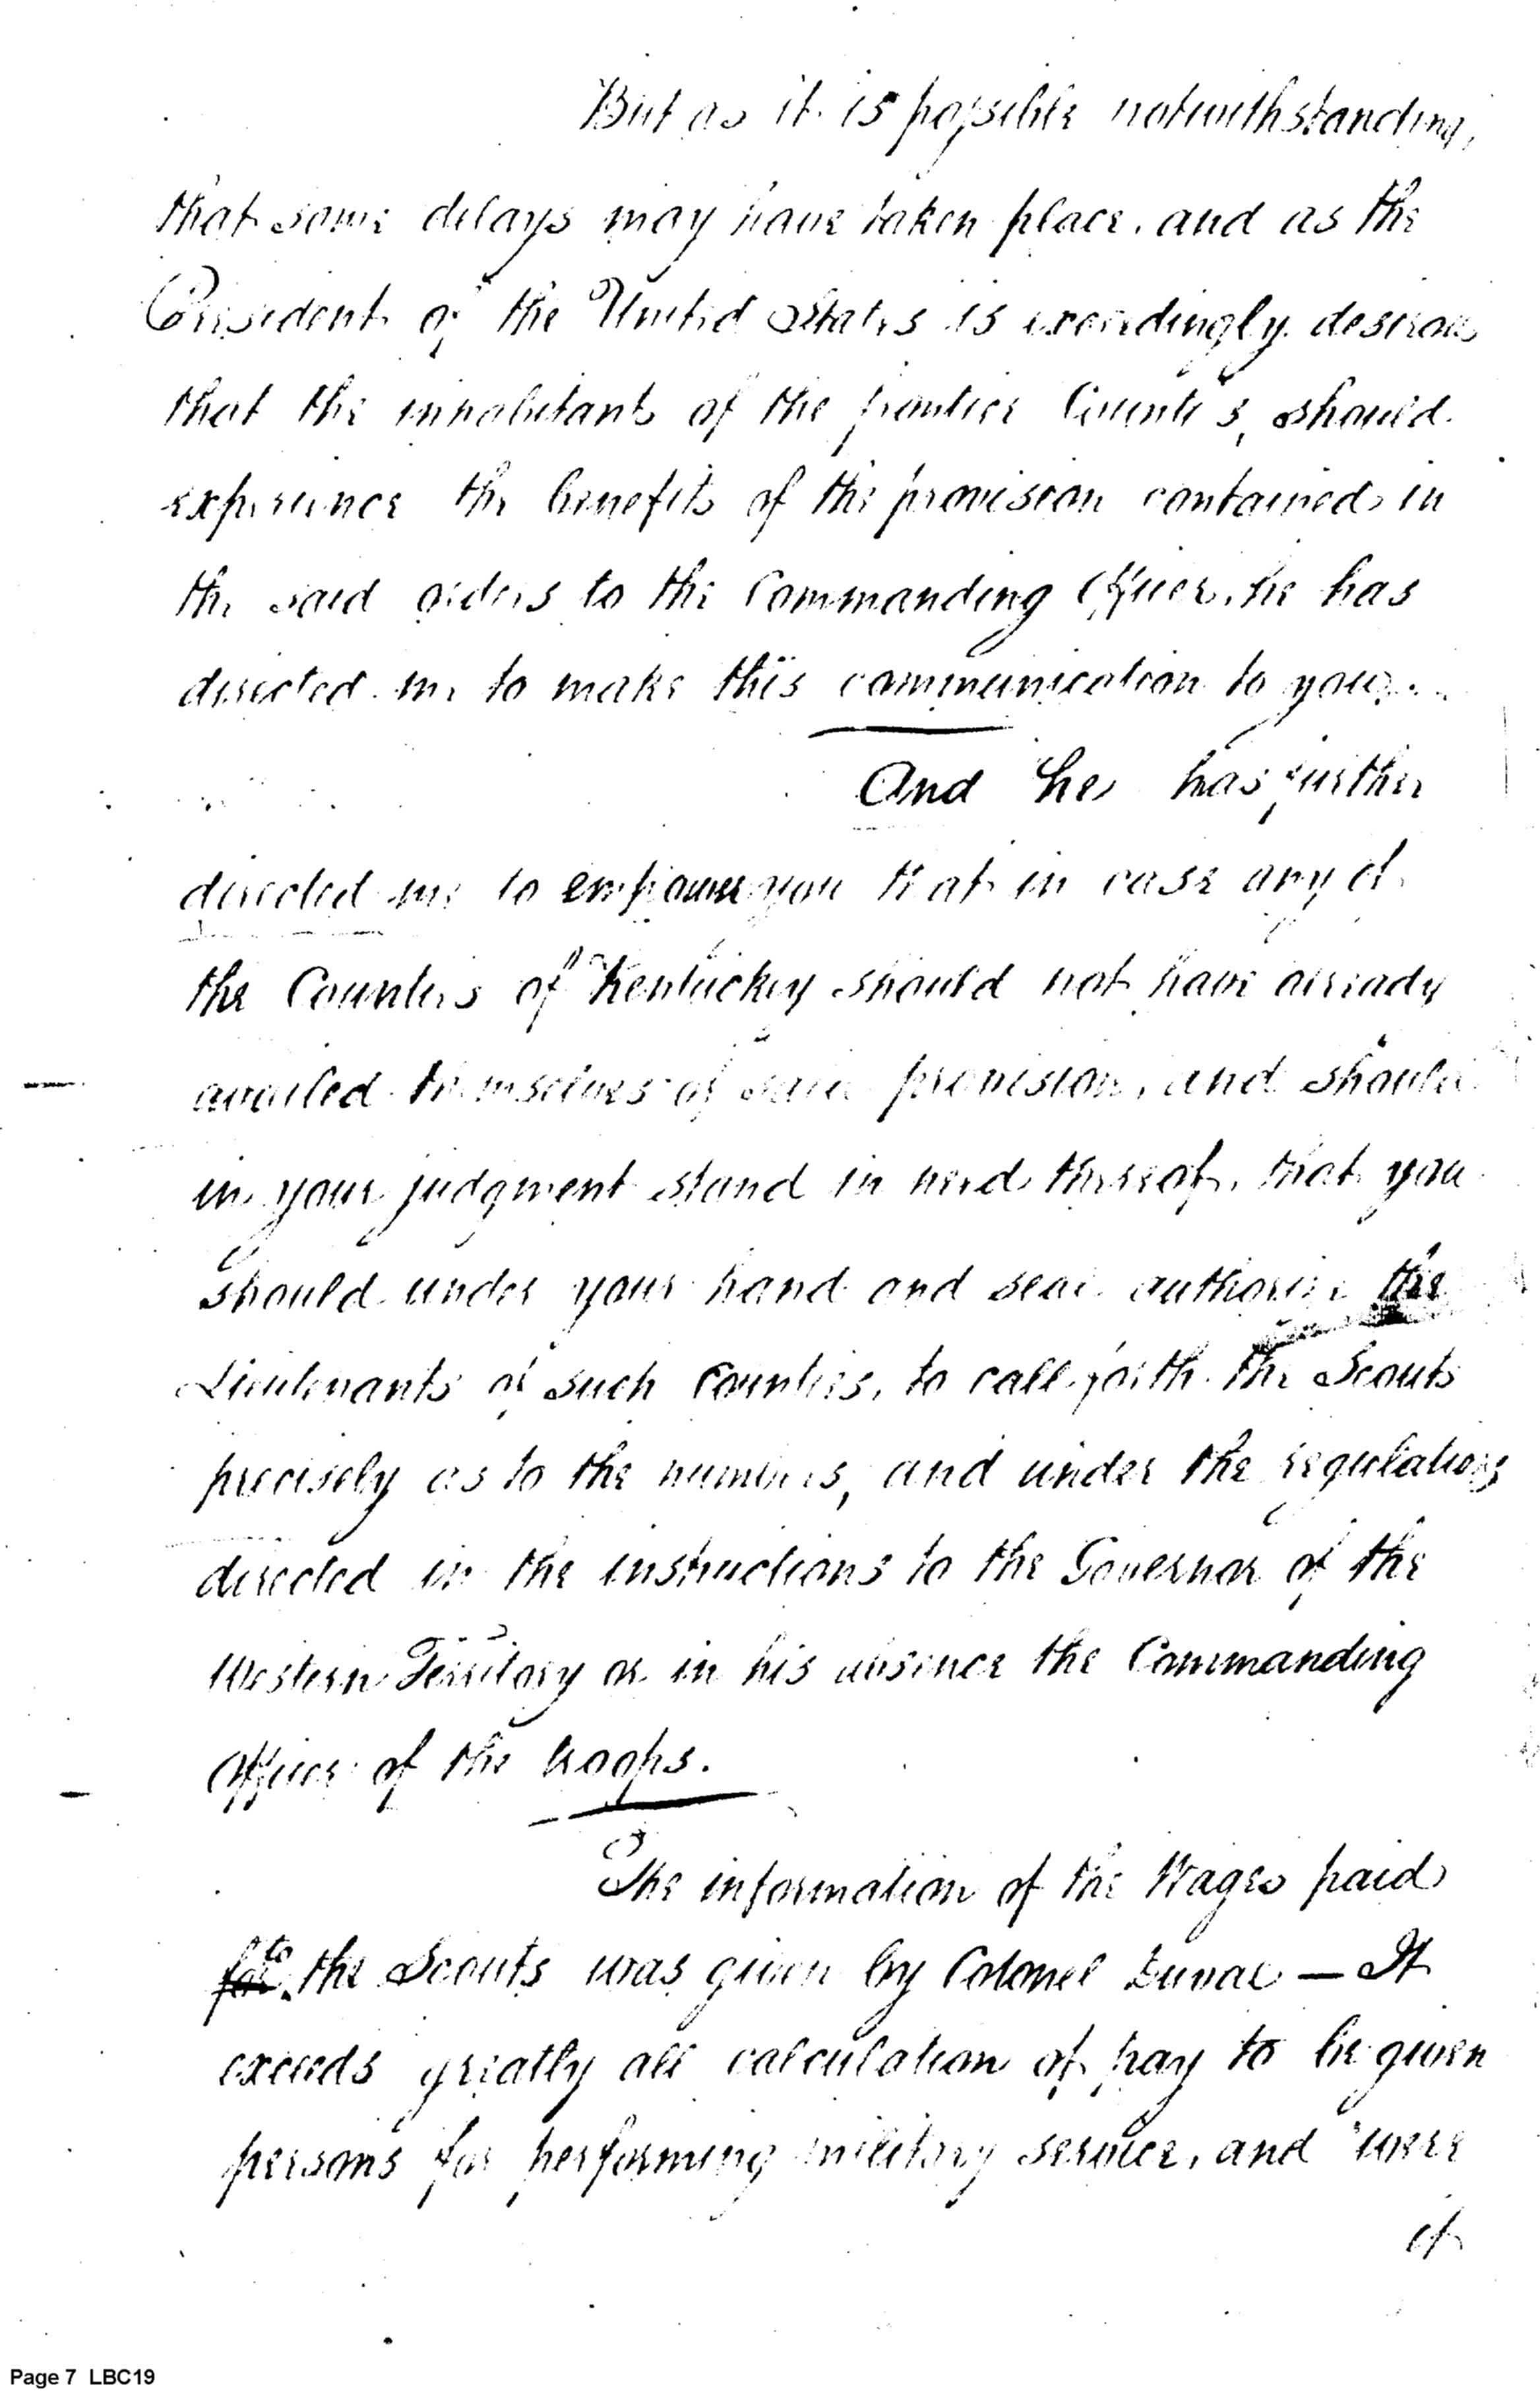 But as it is possible notwithstanding,
that some delays may have taken place, and as the
President of the United States is exceedingly desirous
that the inhabitants of the frontier Counties, should
experience the benefits of the provision contained in
the said orders to the Commanding Officer, he has
directed me to make this communication to you.
And he has further
directed me to empower you that in case any of
the Counties of Kentuckey should not have already
availed themselves of said provision, and should
in your judgment stand in need thereof, that you
should under your hand and seal authorize the
Lieutenants of such Counties, to call forth the Scouts
precisely as to the numbers, and under the regulations
directed in the instructions to the Governor of the
Western Territory or in his absence the Commanding
Officer of the troops.
The information of the Wages paid
for to the Scouts was given by Colonel Duval — It
exceeds greatly all calculation of pay to be given
persons for performing military service, and were
it
Page 7 LBC19